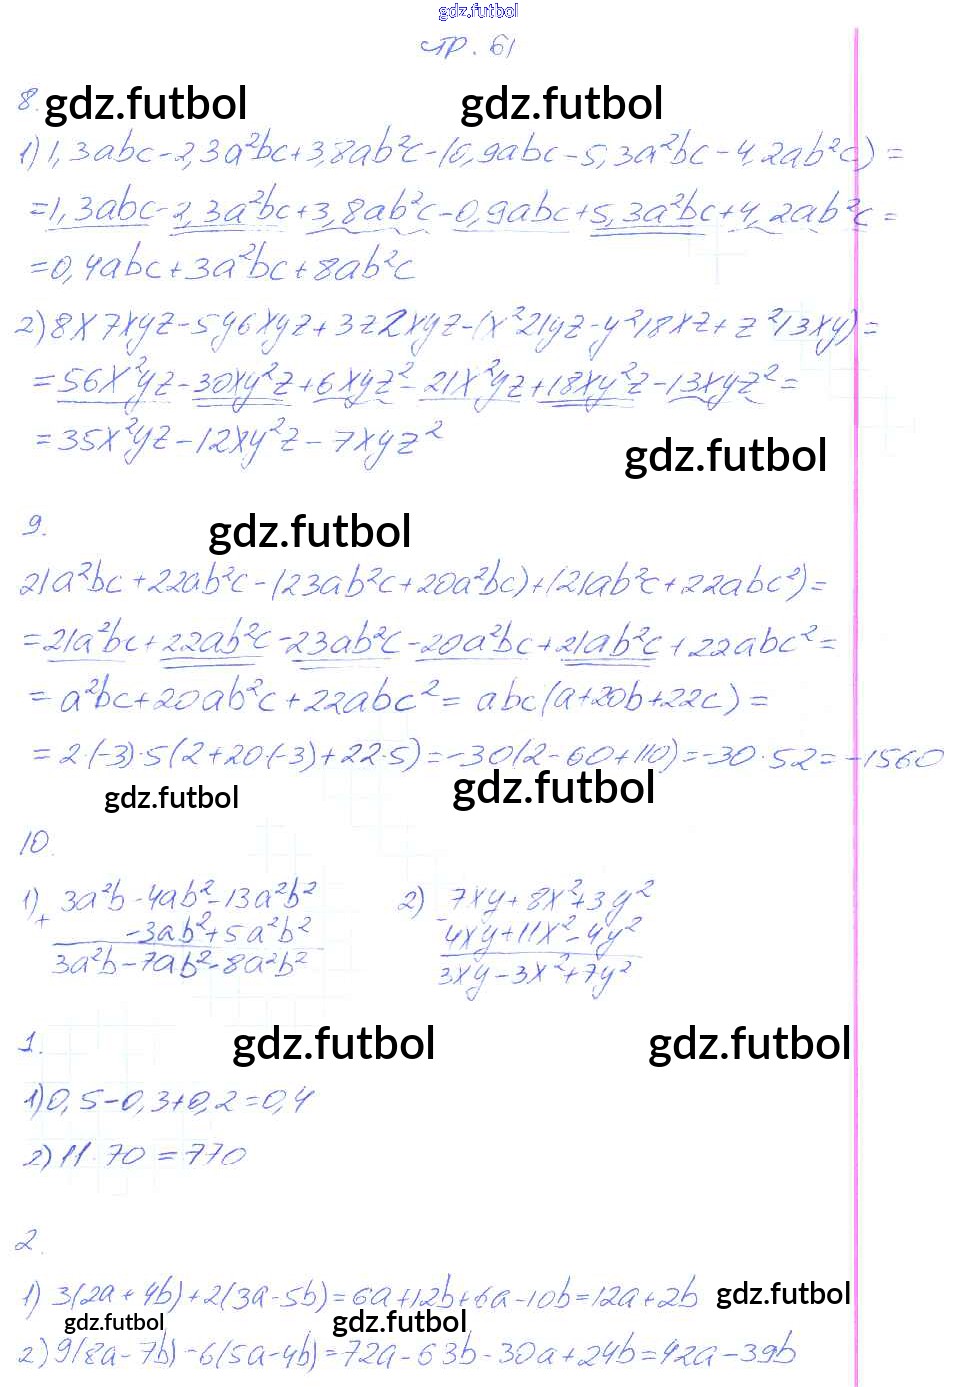 gdz.futbol
стр. 61
8. gdz.futbol gdz.futbol
1) 1,3abc-2,3a²bc+3,8ab²c-(0,9abc-5,3a²bc-4,2ab²c)=
=1,3abc-2,3a²bc+3,8ab²c-0,9abc+5,3a²bc+4,2ab²c=
=0,4abc+3a²bc+8ab²c
2) 8x7xyz-5y6xyz+3z2xyz-(x²21yz-y²18xz+z²13xy)=
=56x²yz-30xy²z+6xyz²-21x²yz+18xy²z-13xyz²=
=35x²yz-12xy²z-7xyz²
gdz.futbol
9. gdz.futbol
21a²bc+22ab²c-(23ab²c+20a²bc)+(21ab²c+22abc²)=
=21a²bc+22ab²c-23ab²c-20a²bc+21ab²c+22abc²=
=a²bc+20ab²c+22abc²=abc(a+20b+22c)=
=2·(-3)·5(2+20·(-3)+22·5)=-30(2-60+110)=-30·52=-1560
gdz.futbol gdz.futbol
10.
1) 3a²b-4ab²-13a²b² 2) 7xy+8x²+3y²
+ -3ab²+5a²b² - 4xy+11x²-4y²
3a²b-7ab²-8a²b² 3xy-3x²+7y²
1. gdz.futbol gdz.futbol
1) 0,5-0,3+0,2=0,4
2) 11·70=770
2.
1) 3(2a+4b)+2(3a-5b)=6a+12b+6a-10b=12a+2b gdz.futbol
gdz.futbol gdz.futbol
2) 9(8a-7b)-6(5a-4b)=72a-63b-30a+24b=42a-39b